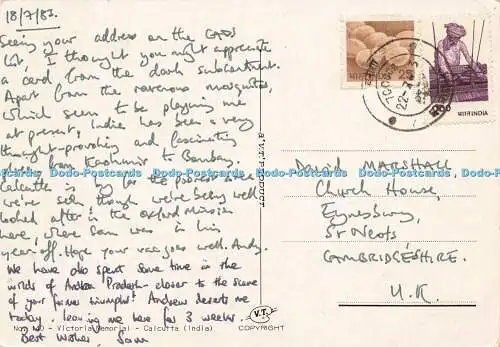 18/7/83.
Seeing your address on the
list, I thought you might appreciate
a card from the dark subcontinent.
Apart from the ravenous mosquitos,
which seem to be plaguing me
at present, India has been a very
thought-provoking and fascinating
place from Kashmir to Bombay.
Calcutta is by far the poorest place
we've seen though we're being well
looked after in the Oxford Mission
here, where Sam was in his
year off. Hope your year goes well. Andy.
We have also spent some time in the
wilds of Andhra Pradesh - closer to the scene
of your former triumphs! Andrew deserts me
today, leaving me here for 3 weeks.
Best Wishes, Sam
No. - Victoria Memorial - Calcutta (India)
A V.T. PRODUCT
V.T.
COPYRIGHT
भारत INDIA 25
भारत INDIA
David MARSHALL,
Church House,
Eynesbury,
St Neots
CAMBRIDGESHIRE.
U.K.
Dodo-Postcards Dodo-Postcards Dodo-Postcards Dodo-Postcards Dodo-Postcards Dodo-Postcards